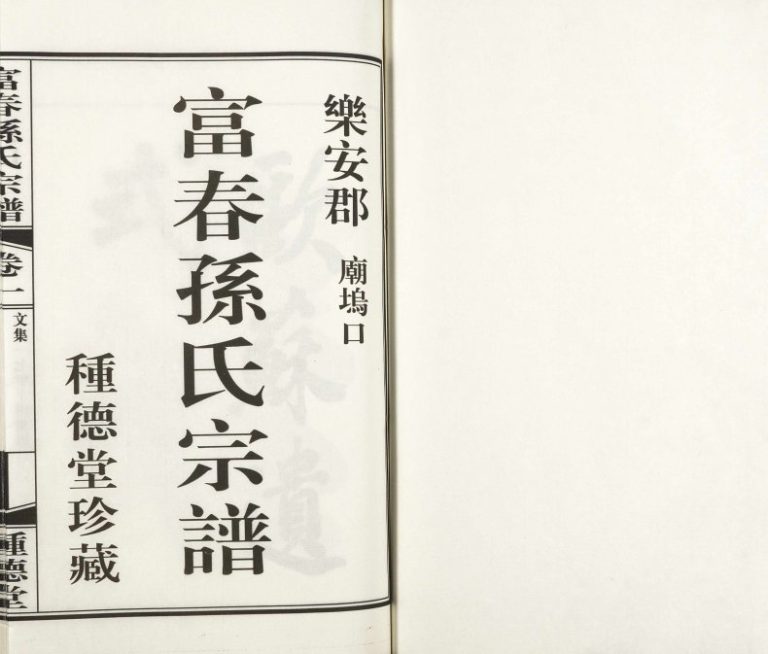 樂安郡 廟塢口
富春孫氏宗譜
種德堂珍藏
富春孫氏宗譜 卷一 文集 種德堂